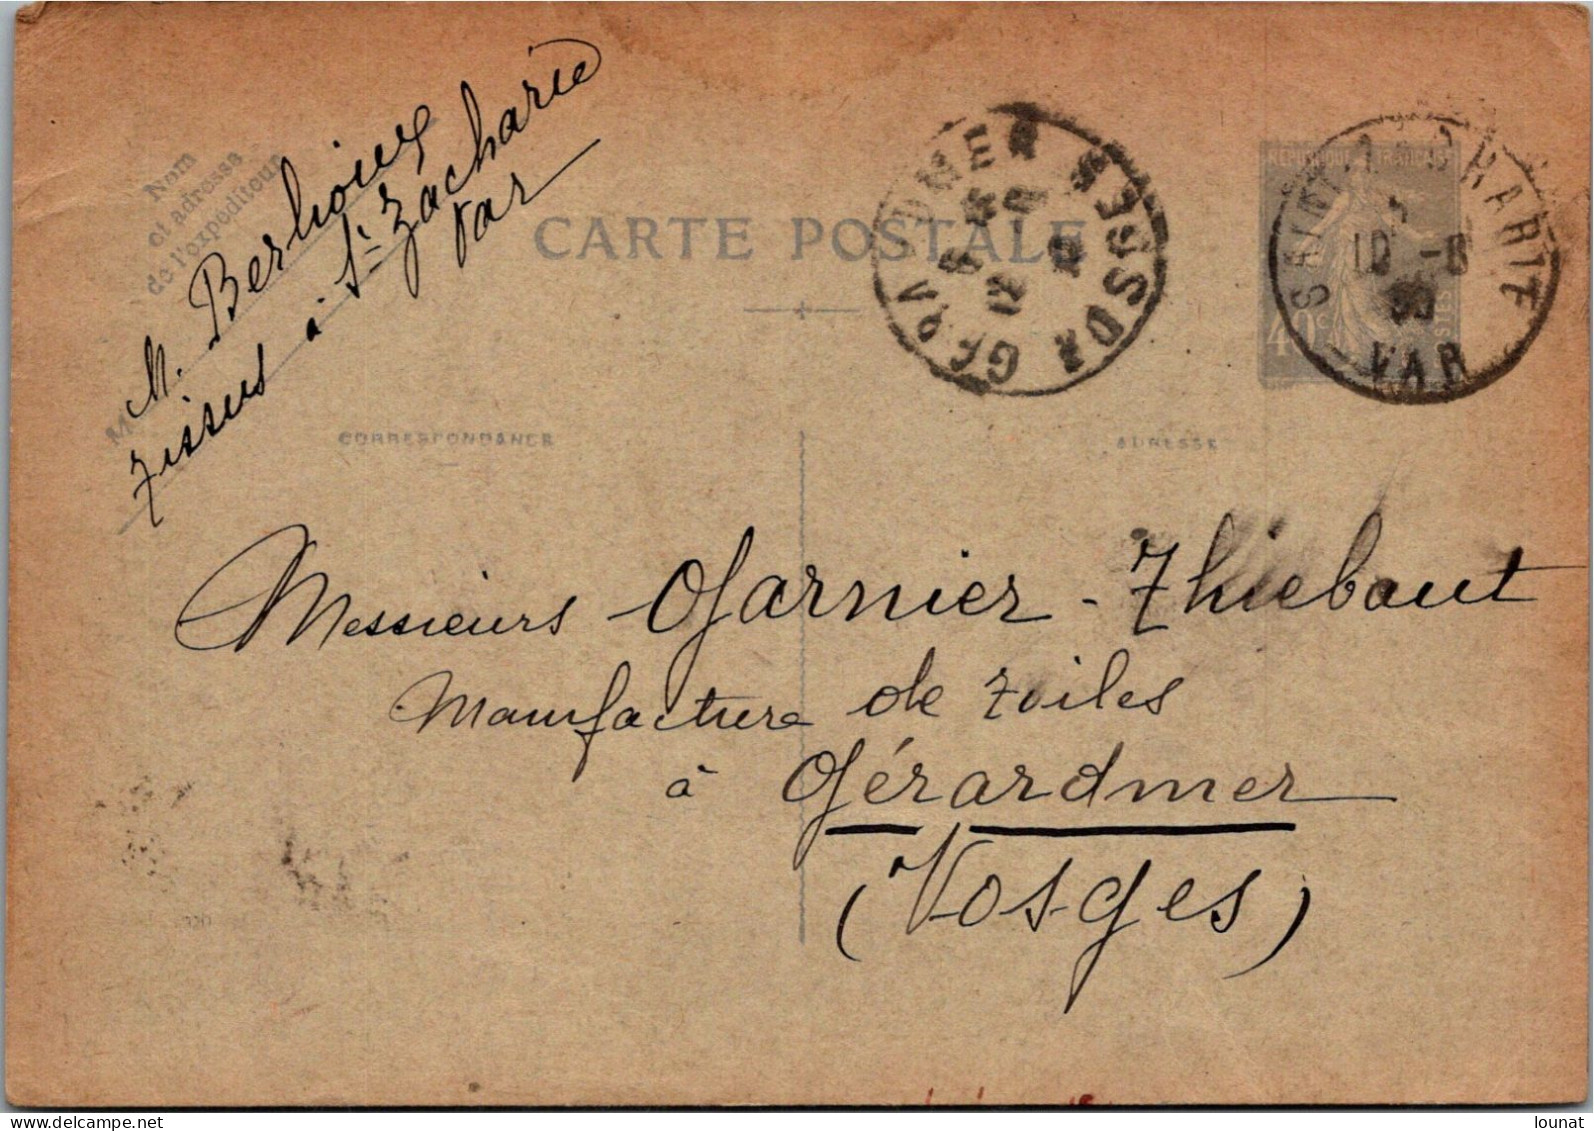 Nom
et adresse
de l'expéditeur
M. Berlioux
Tissus à St Zacharie
Var
CARTE POSTALE
GERARDMER VOSGES
RÉPUBLIQUE FRANÇAISE
40c
POSTES
SAINT-ZACHARIE
10 -6
30
VAR
CORRESPONDANCE
ADRESSE
Messieurs Garnier-Thiebaut
Manufacture de Toiles
à Gérardmer
(Vosges)
lounat
www.delcampe.net